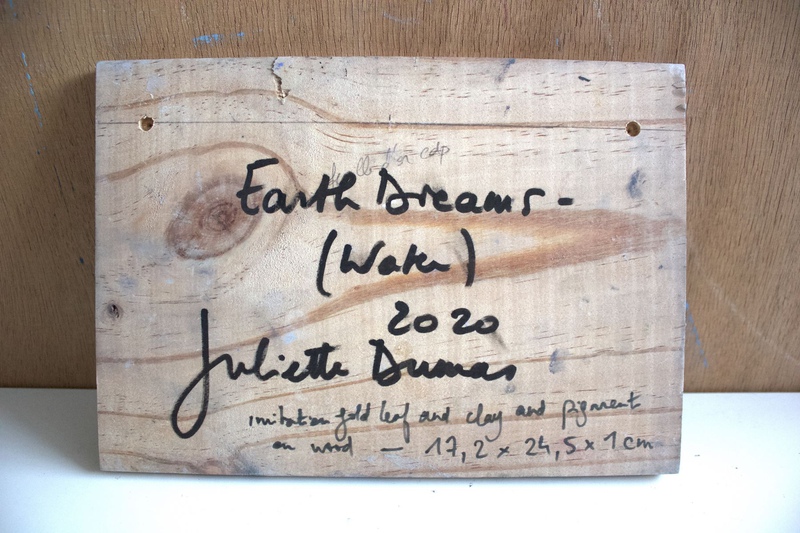 Earth Dreams -
(Water)
2020
Juliette Dumas
imitation gold leaf and clay and pigment
on wood — 17,2 x 24,5 x 1 cm